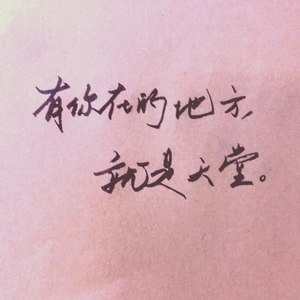 有你在的地方,
就是天堂。